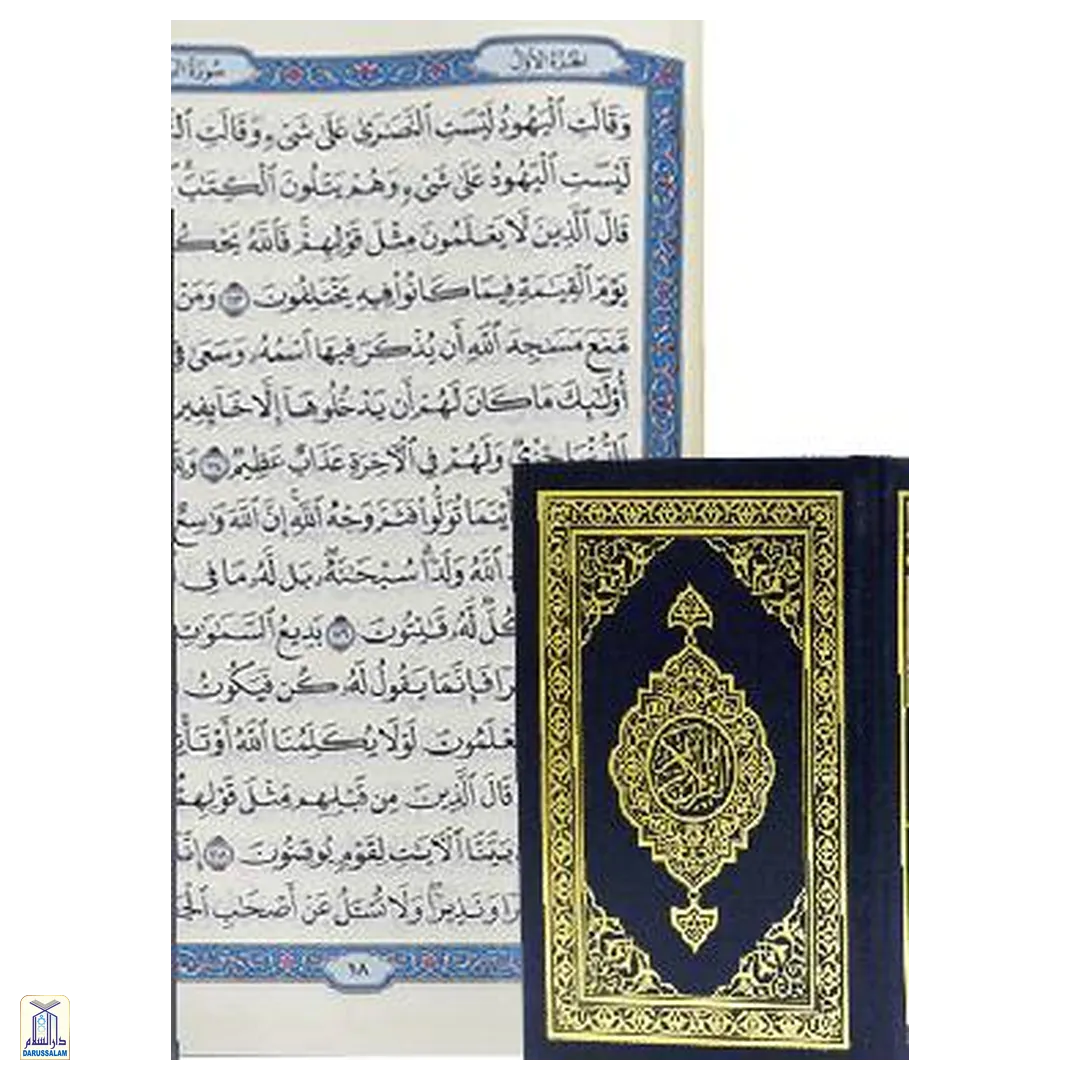 الجزء الأول
سورة ال
وَقَالَتِ ٱلْيَهُودُ لَيْسَتِ ٱلنَّصَٰرَىٰ عَلَىٰ شَىْءٍ وَقَالَتِ
لَيْسَتِ ٱلْيَهُودُ عَلَىٰ شَىْءٍ وَهُمْ يَتْلُونَ ٱلْكِتَٰبَ
قَالَ ٱلَّذِينَ لَا يَعْلَمُونَ مِثْلَ قَوْلِهِمْ فَٱللَّهُ يَحْكُ
يَوْمَ ٱلْقِيَٰمَةِ فِيمَا كَانُوا۟ فِيهِ يَخْتَلِفُونَ ١١٣ وَمَنْ
مَّنَعَ مَسَٰجِدَ ٱللَّهِ أَن يُذْكَرَ فِيهَا ٱسْمُهُۥ وَسَعَىٰ فِى
أُو۟لَٰٓئِكَ مَا كَانَ لَهُمْ أَن يَدْخُلُوهَآ إِلَّا خَآئِفِين
ٱلدُّنْيَا خِزْىٌ وَلَهُمْ فِى ٱلْءَاخِرَةِ عَذَابٌ عَظِيمٌ ١١٤
أَيْنَمَا تُوَلُّوا۟ فَثَمَّ وَجْهُ ٱللَّهِ إِنَّ ٱللَّهَ وَٰسِعٌ
ٱللَّهُ وَلَدًا سُبْحَٰنَهُۥ بَل لَّهُۥ مَا فِى
كُلٌّ لَّهُۥ قَٰنِتُونَ ١١٦ بَدِيعُ ٱلسَّمَٰوَٰتِ
رًا فَإِنَّمَا يَقُولُ لَهُۥ كُن فَيَكُونُ
يَعْلَمُونَ لَوْلَا يُكَلِّمُنَا ٱللَّهُ أَوْ تَأْتِ
قَالَ ٱلَّذِينَ مِن قَبْلِهِم مِّثْلَ قَوْلِهِمْ
بَيَّنَّا ٱلْءَايَٰتِ لِقَوْمٍ يُوقِنُونَ ١١٨ إِنَّا
رًا وَنَذِيرًا وَلَا تُسْـَٔلُ عَنْ أَصْحَٰبِ ٱلْجَ
١٨
القرآن الكريم
دار السلام
DARUSSALAM